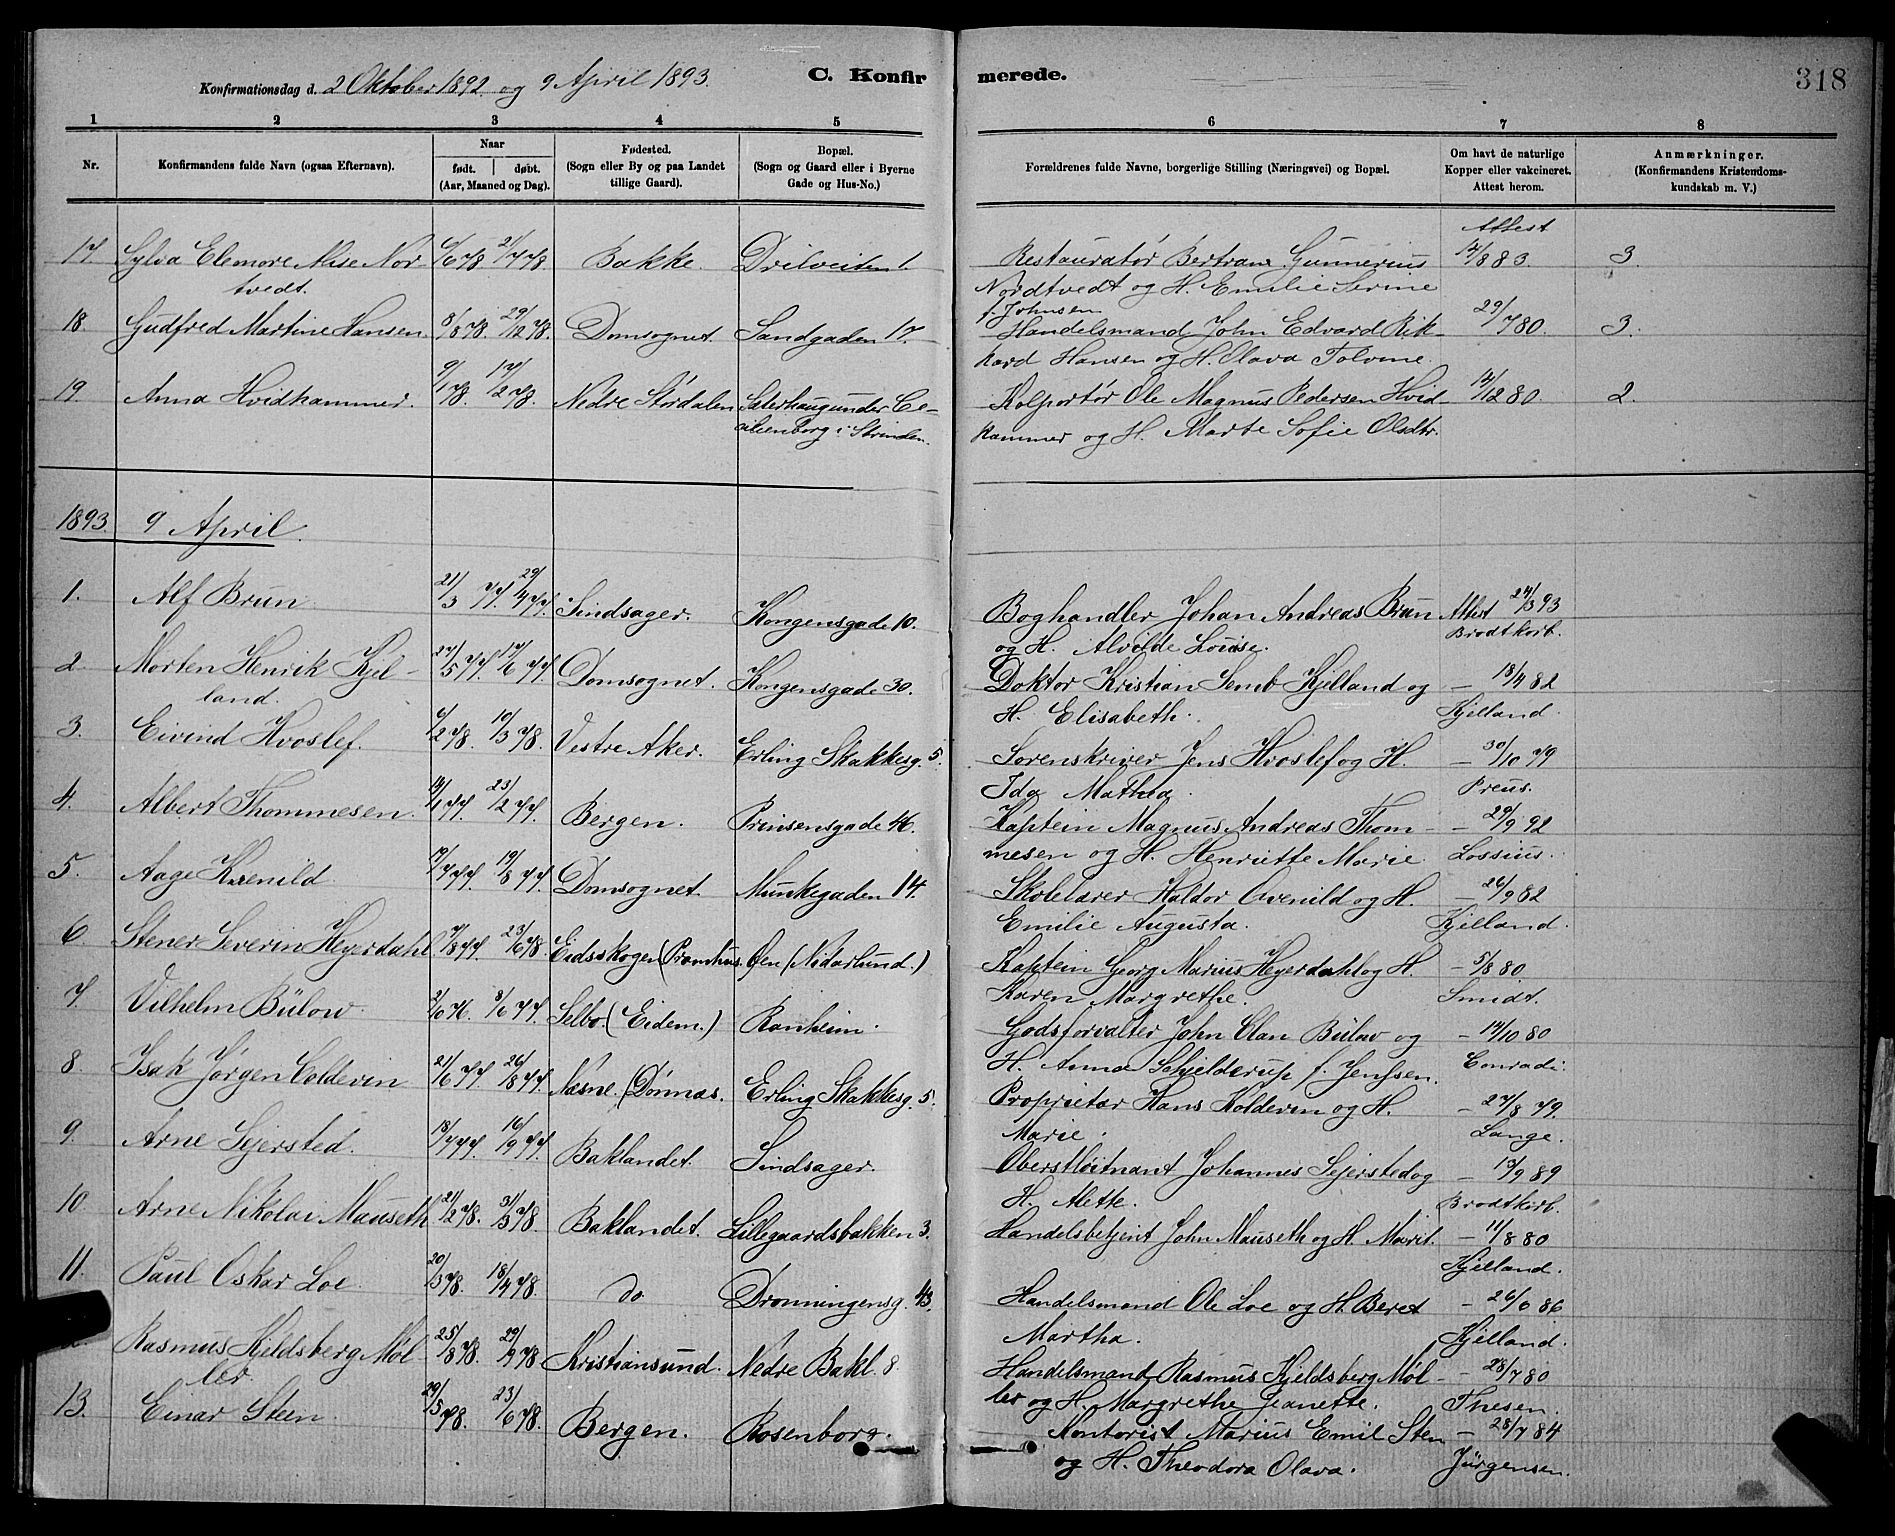 318
Konfirmationsdag d. 2 Oktober 1892 og 9 April 1893.
C. Konfirmerede.
1 2 3 4 5 6 7 8
Nr.
Konfirmandens fulde Navn (ogsaa Efternavn).
Naar
født. døbt.
(Aar, Maaned og Dag).
Fødested.
(Sogn eller By og paa Landet
tillige Gaard).
Bopæl.
(Sogn og Gaard eller i Byerne
Gade og Hus-No.)
Forældrenes fulde Navne, borgerlige Stilling (Næringsvei) og Bopæl.
Om havt de naturlige
Kopper eller vakcineret.
Attest herom.
Anmærkninger.
(Konfirmandens Kristendoms-
kundskab m. V.)
Attest
17. Sylva Elenore Alise Nor 6/6 78. 21/7 78. Bakke. Drilveiten 1. Restauratør Bertram Gunnerius 14/8 83. 3.
tvedt. Nordtvedt og H. Emilie Serine
f. Johnsen
18. Gudfred Martine Hansen. 8/8 78. 29/12 78. Domsognet. Sandgaden 17. Handelsmand John Edvard Rik- 29/7 80. 3.
kard Hansen og H. Olava Tolvine.
19. Anna Hvidhammer. 9/1 78. 17/2 78. Nedre Størdalen Sæterhaug under Ce- Kolportør Ole Magnus Pedersen Hvid 14/12 80. 2.
cilienborg i Strinden. hammer og H. Marte Sofie Olsdtr.
1893. 9 April.
1. Alf Brun 21/3 77. 29/4 77. Sindsager. Kongensgade 10. Boghandler Johan Andreas Brun Attest 24/3 93
og H. Alvilde Louise. Brodtkorb.
2. Morten Henrik Kjel- 27/5 77 17/6 77. Domsognet. Kongensgade 30. Doktor Kristian Semb Kjelland og — 18/4 82
land. H. Elisabeth. Kjelland.
3. Eivind Hvoslef. 6/2 78. 10/3 78. Vestre Aker. Erling Skakkesg. 5. Sorenskriver Jens Hvoslef og H. — 30/10 79
Ida Mathea. Preus.
4. Albert Thommesen. 14/1 77. 23/2 77. Bergen. Prinsensgade 46. Kaptein Magnus Andreas Thom- — 29/9 92
mesen og H. Henriette Marie Lossius.
5. Aage 17/7 77. 19/8 77. Domsognet. Munkegaden 14. Skolelærer Haldor Ovenild og H. — 26/9 82
Emilie Augusta. Kjelland.
6. Stener Severin Heyerdahl 7/8 77. 23/6 78. Eidsskogen (Pramhus. Øen (Nidarlund.) Kaptein Georg Marius Heyerdahl og H. — 5/8 80
Karen Margrethe. Smidt.
7. Vilhelm Bülow 8/6 77. Selbo. (Eidem.) Ranheim. Godsforvalter John Olan Bülow og — 14/10 80
H. Anna Schjelderup f. Jenssen. Conradi.
8. Isak Jørgen Coldevin 21/6 77 26/8 77. Næsne. (Dönnæs. Erling Skakkesg. 5. Proprietær Hans Koldevin og H. — 27/8 79.
Marie. Lange.
9. Arne Sejersted. 18/7 77. 16/9 77. Baklandet. Sindsager. Oberstløitnant Johannes Sejersted og — 13/9 89
H. Mette. Brodtkorb.
10. Arne Nikolai Mauseth 21/2 78. 31/3 78. Baklandet. Lillegaardsbakken 3. Handelsbetjent John Mauseth og H. Marit. — 11/8 80
Kjelland.
11. Paul Oskar Loe. 20/3 78. 18/4 78. do Dronningensg. 43. Handelsmand Ole Loe og H. Beret — 26/6 86
Martha. Kjelland.
Rasmus Kjeldsberg Møl- 25/8 78. 29/9 78. Kristiansund. Nedre Bakl. 8. Handelsmand Rasmus Kjeldsberg Møl- — 28/7 80
ler. ler og H. Margrethe Jeanette. Thesen.
13. Einar Steen. 29/5 78. 23/6 78. Bergen. Rosenborg. Kontorist Marius Emil Sten — 28/7 84
og H. Theodora Olava. Jürgensen.